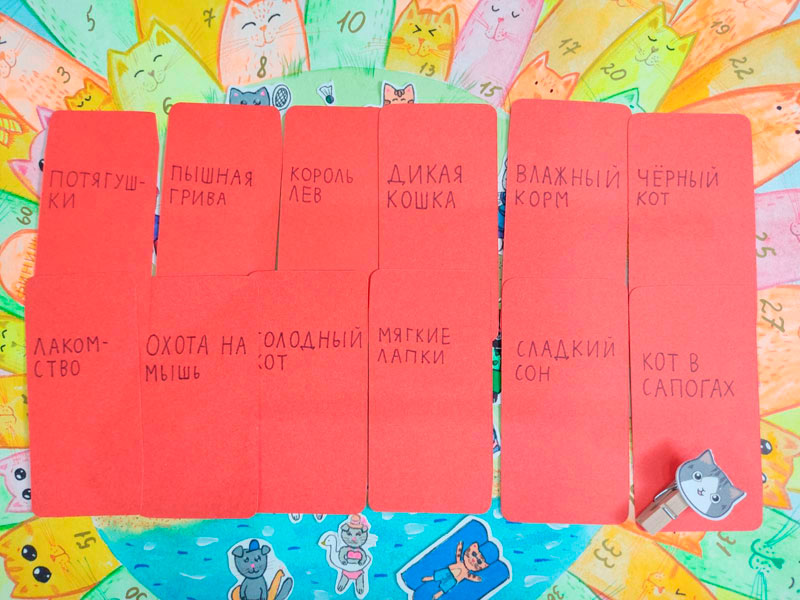 7
10
5
8
13
15
17
20
19
22
6
ПОТЯГУШ-
КИ
ПЫШНАЯ
ГРИВА
КОРОЛЬ
ЛЕВ
ДИКАЯ
КОШКА
ВЛАЖНЫЙ
КОРМ
ЧЁРНЫЙ
КОТ
25
27
ЛАКОМ-
СТВО
ОХОТА НА
МЫШЬ
ОЛОДНЫЙ
КОТ
МЯГКИЕ
ЛАПКИ
СЛАДКИЙ
СОН
КОТ В
САПОГАХ
31
33